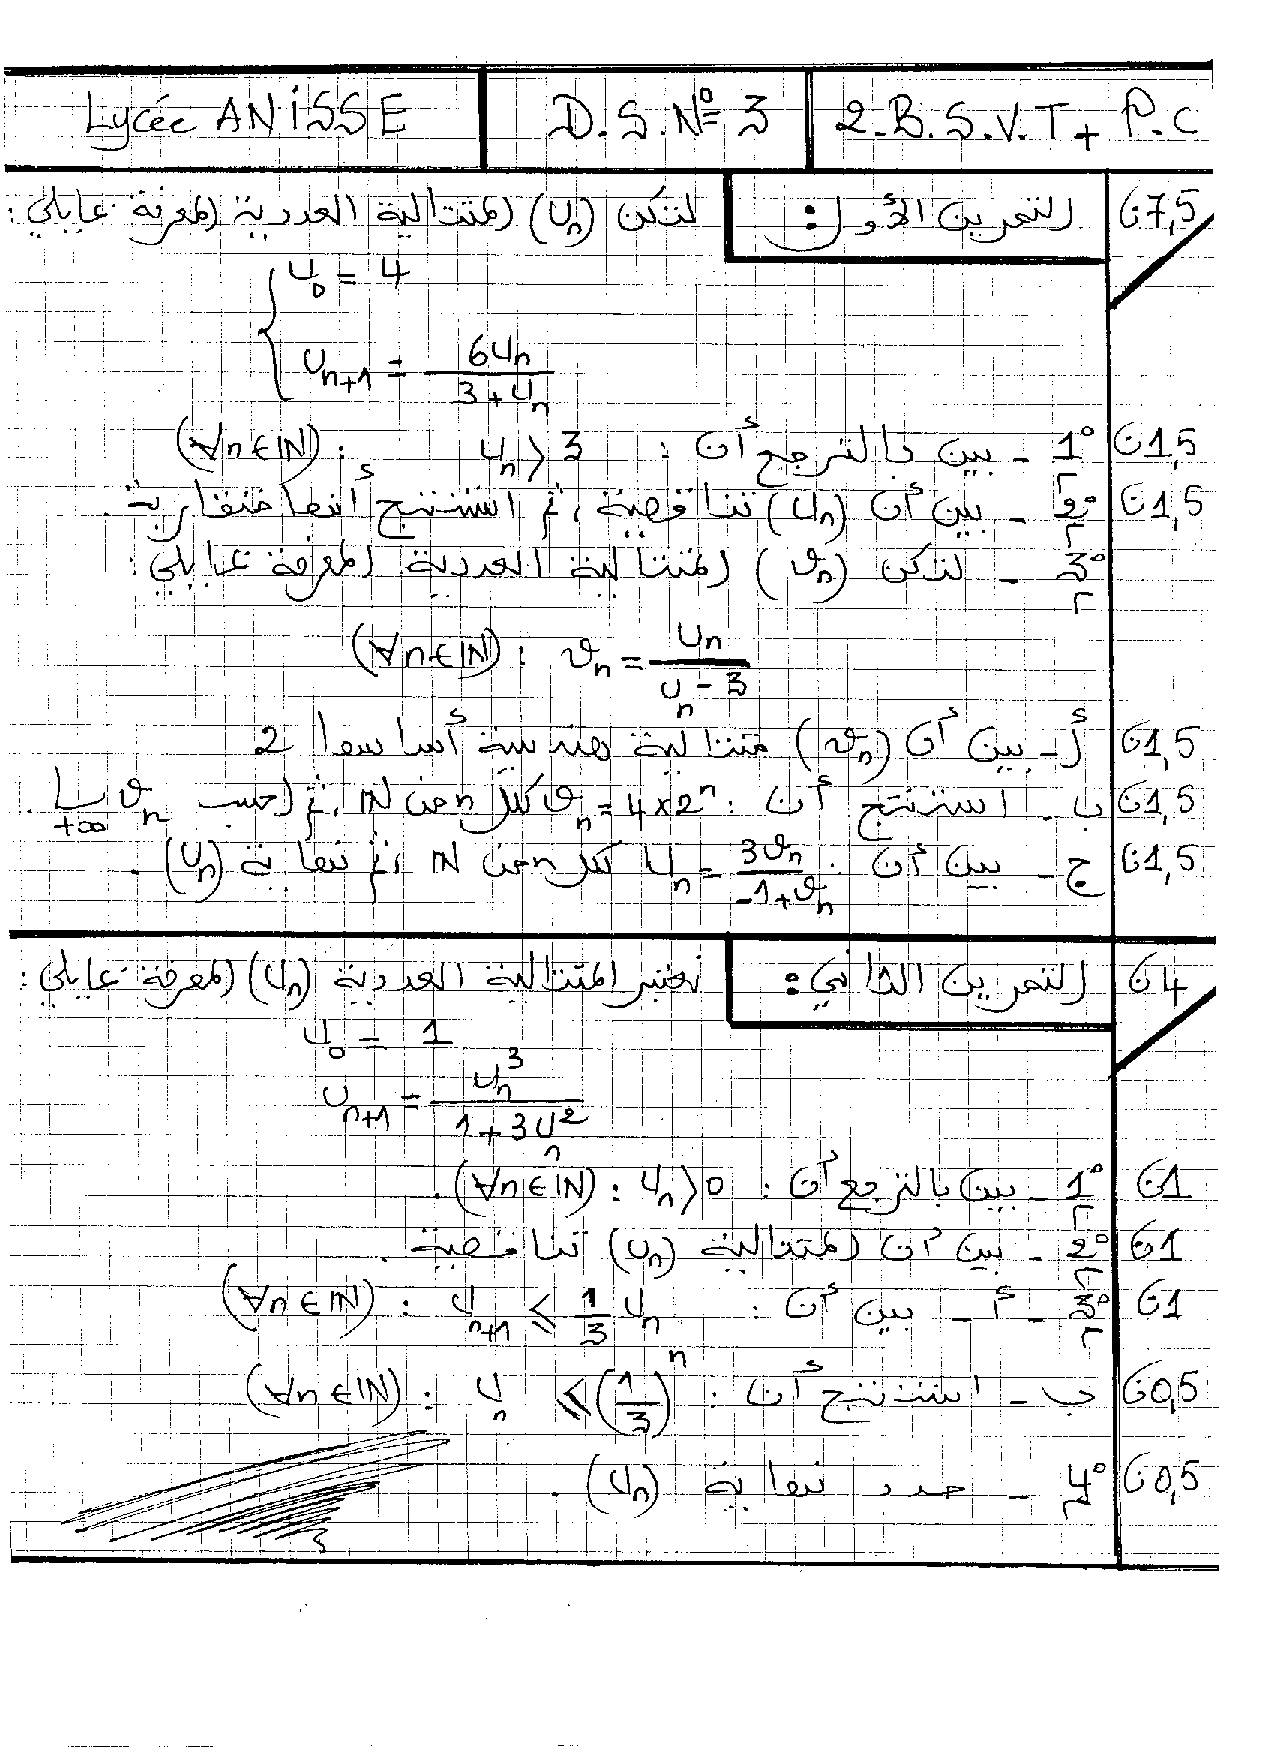 Lycée ANISSE
D.S.N° 3
2.B.S.V.T + P.C
التمرين الأول: لتكن (Un) المتتالية العددية المعرفة بمايلي: ن7,5
U0 = 4
Un+1 = 6Un / (3+Un)
1° - بين بالترجع أن : Un > 3 : (∀n∈IN) ن1,5
2° - بين أن (Un) تناقصية ، ثم استنتج أنها متقاربة. ن1,5
3° - لتكن (vn) المتتالية العددية المعرفة بمايلي:
(∀n∈IN) : vn = Un / (Un - 3)
أ- بين أن (vn) متتالية هندسية أساسها 2 ن1,5
ب - استنتج أن : vn = 4×2^n لكل n من IN ، ثم احسب lim vn +∞ . ن1,5
ج - بين أن : Un = 3vn / (-1+vn) لكل n من IN ، ثم نهاية (Un) . ن1,5
التمرين الثاني: نعتبر المتتالية العددية (Un) المعرفة بمايلي: ن4
U0 = 1
Un+1 = Un^3 / (1+3Un^2)
1° - بين بالترجع أن : (∀n∈IN) : Un > 0 . ن1
2° - بين أن المتتالية (Un) تناقصية . ن1
3° - أ - بين أن : (∀n∈IN) : Un+1 ⩽ 1/3 Un ن1
ب - استنتج أن : (∀n∈IN) : Un ⩽ (1/3)^n ن0,5
4° - حدد نهاية (Un) . ن0,5